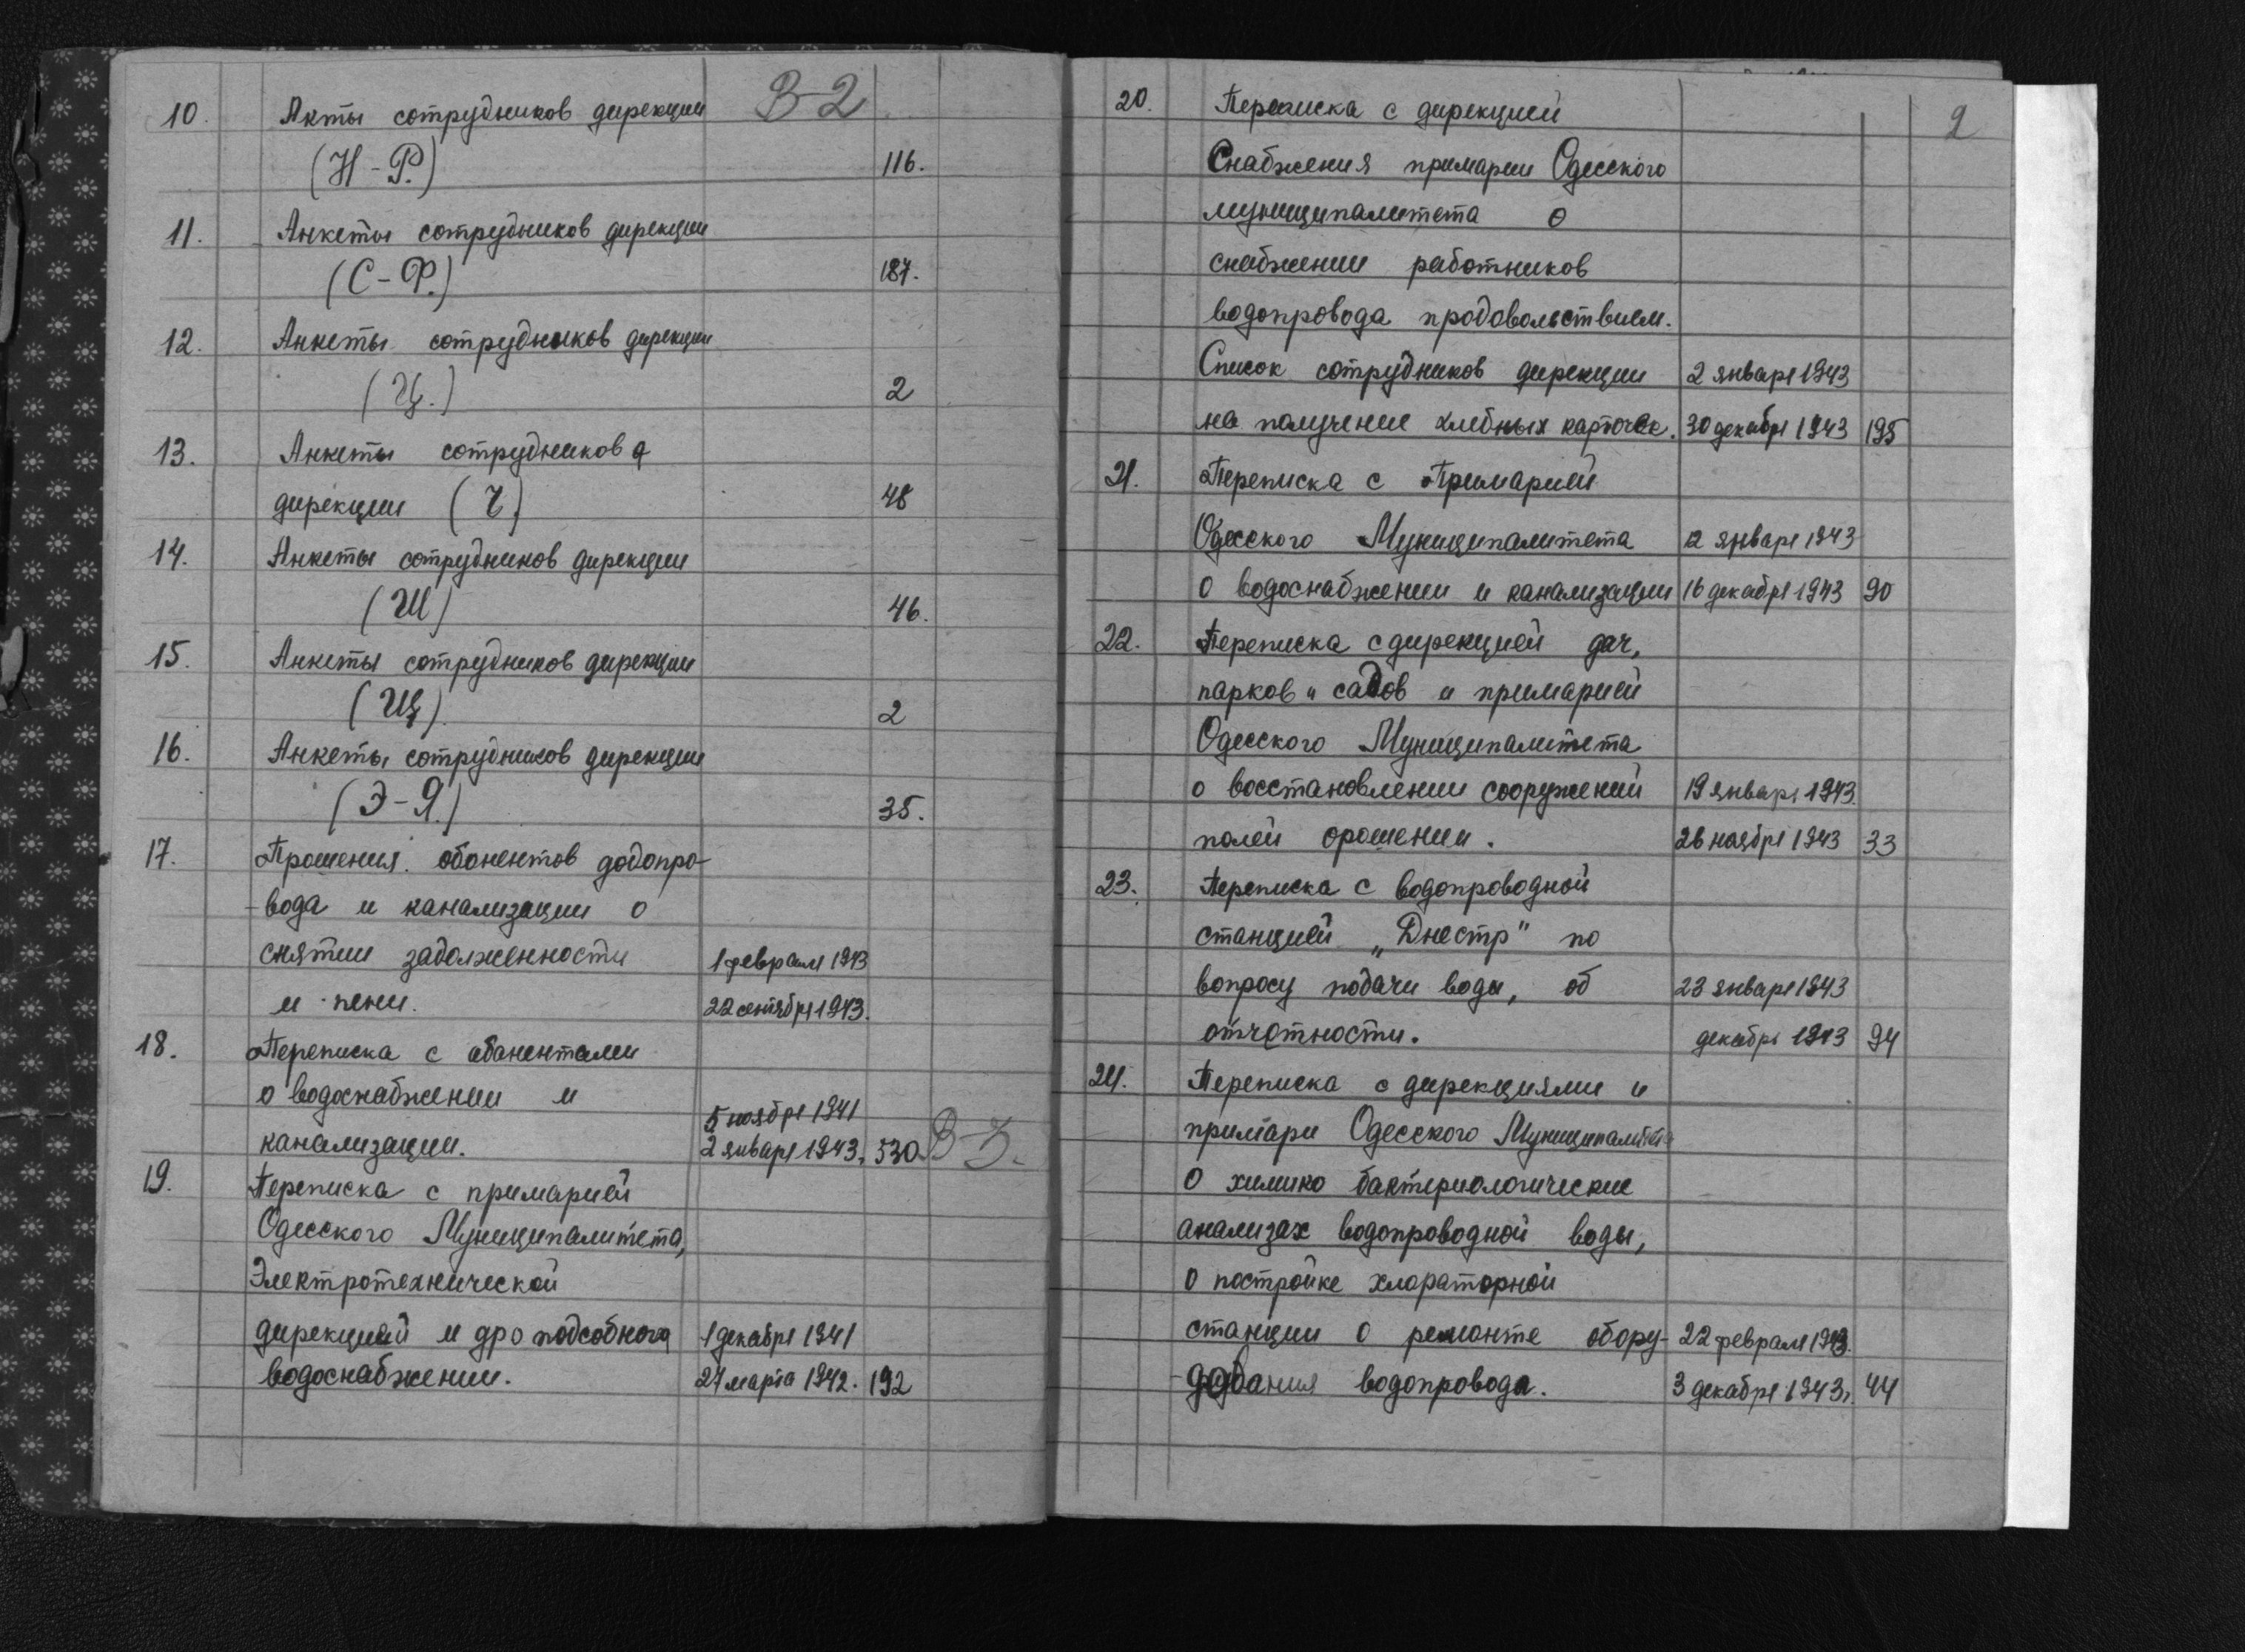 В-2
10. Акты сотрудников дирекции
(Н-Р.) 116.
11. Анкеты сотрудников дирекции
(С-Ф.) 187.
12. Анкеты сотрудников дирекции
(Ц.) 2
13. Анкеты сотрудников
дирекции (Ч.) 48
14. Анкеты сотрудников дирекции
(Ш) 46.
15. Анкеты сотрудников дирекции
(Щ). 2
16. Анкеты сотрудников дирекции
(Э-Я.) 35.
17. Прошения абонентов додопро-
вода и канализации о
снятии задолженности 1 февраля 1943
и пени. 22 сентября 1943.
18. Переписка с абонентами
о водоснабжении и 5 ноября 1941
канализации. 2 января 1943. 530 В-3.
19. Переписка с примарией
Одесского Муниципалитета,
Электротехнической
дирекцией и др о подсобного 1 декабря 1941
водоснабжении. 24 марта 1942. 192
2
20. Переписка с дирекцией
Снабжения примарии Одесского
муниципалитета о
снабжении работников
водопровода продовольствием.
Список сотрудников дирекции 2 января 1943
на получение хлебных карточек. 30 декабря 1943 195
21. Переписка с Примарией
Одесского Муниципалитета 12 января 1943
о водоснабжении и канализации 16 декабря 1943 90
22. Переписка с дирекцией дач,
парков и садов и примарией
Одесского Муниципалитета
о восстановлении сооружений 19 января 1943.
полей орошении. 26 ноября 1943 33
23. Переписка с водопроводной
станцией „Днестр" по
вопросу подачи воды, об 23 января 1943
отчетности. декабрь 1943 94
24. Переписка с дирекциями и
примари Одесского Муниципалитета
О химико бактериологические
анализах водопроводной воды,
о постройке хлораторной
станции о ремонте обору- 22 февраля 1943.
дования водопровода. 3 декабря 1943г. 44